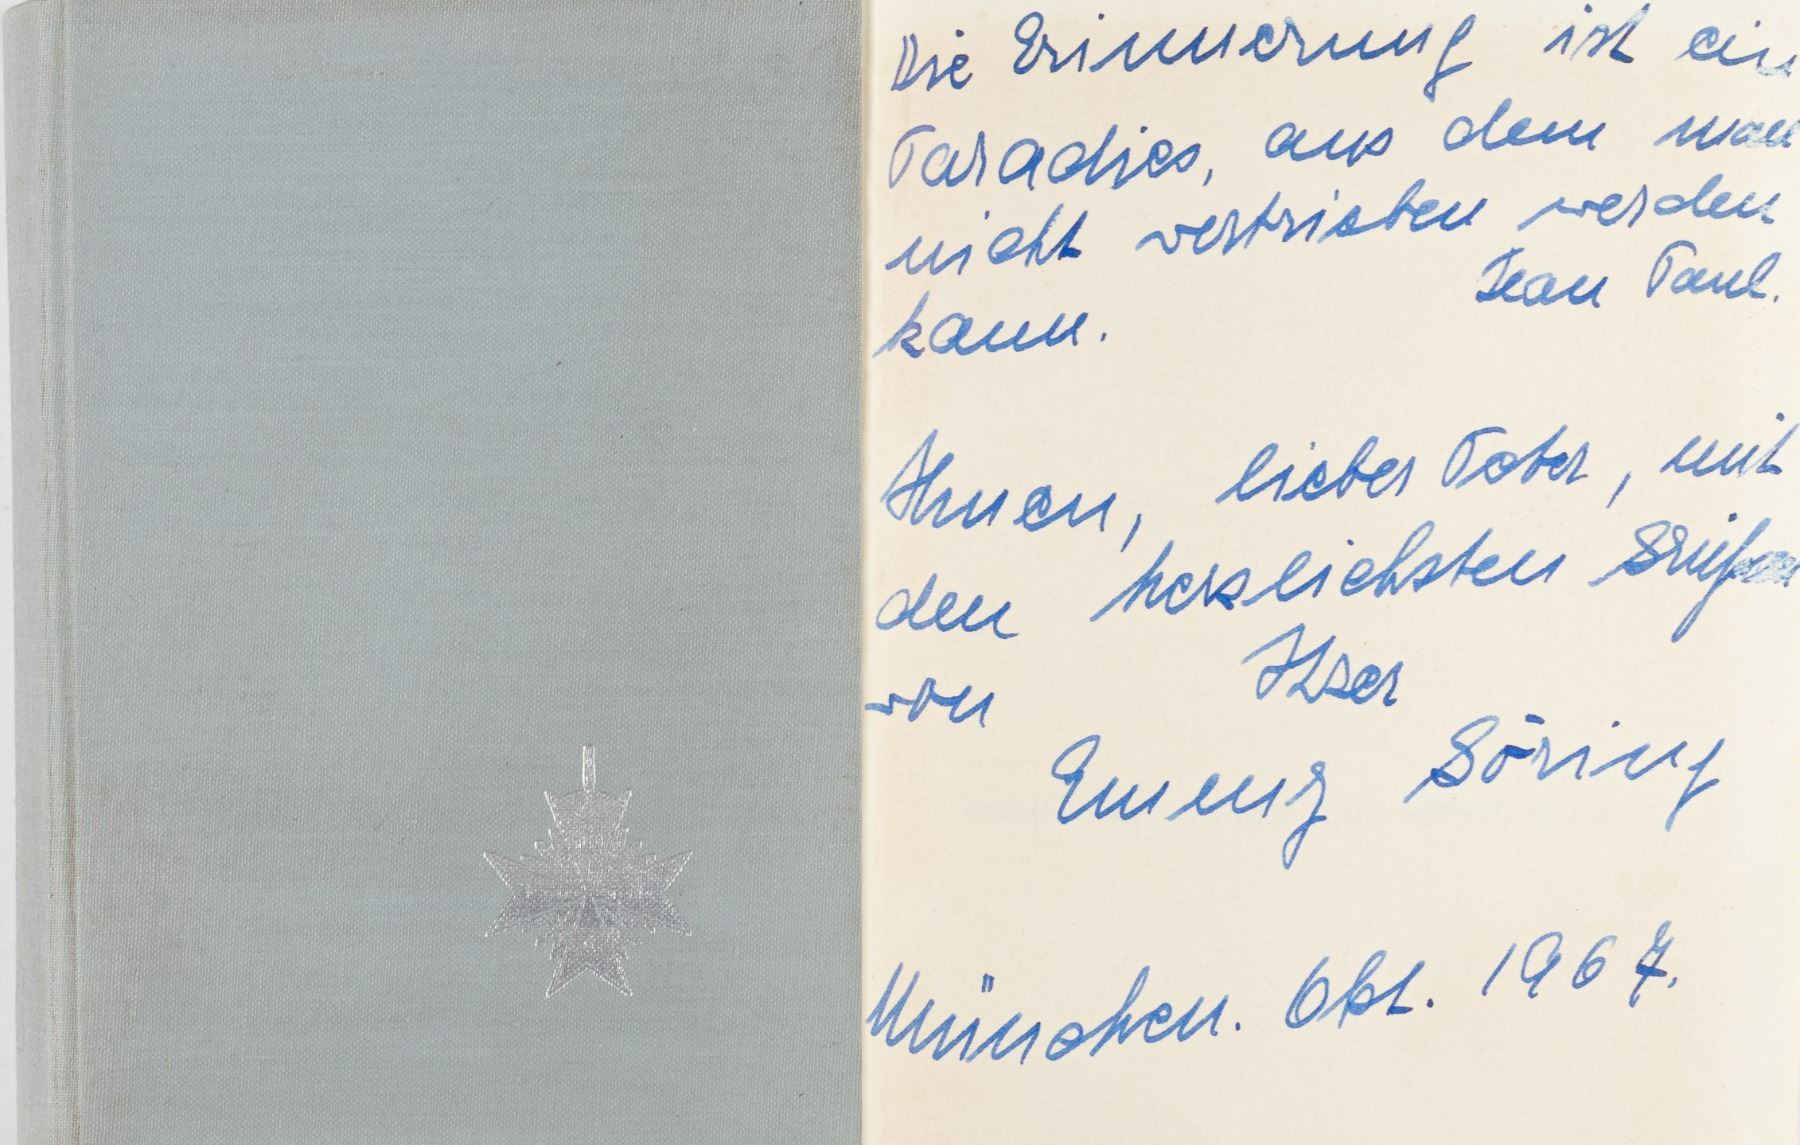 Die Erinnerung ist ein
Paradies, aus dem man
nicht vertrieben werden
kann.
Jean Paul.
Ihnen, lieber Tober, mit
den herzlichsten Grüßen
von Ihrer
Emmy Göring
München. Okt. 1967.